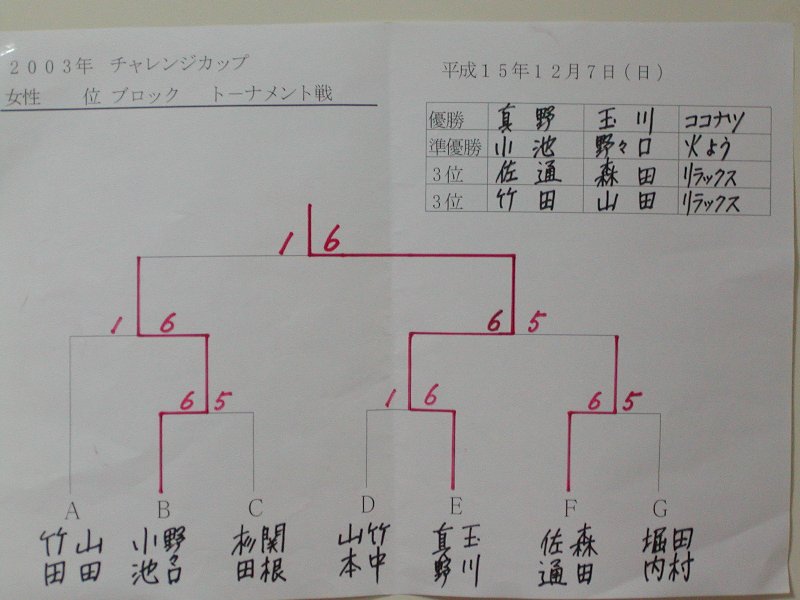 2003年 チャレンジカップ
平成15年12月7日(日)
女性 位 ブロック トーナメント戦
優勝 真野 玉川 ココナツ
準優勝 小池 野々口 火よう
3位 佐通 森田 リラックス
3位 竹田 山田 リラックス
1 6
1 6 6 5
6 5 1 6 6 5
A B C D E F G
竹田 山田 小池 野々口 杉田 関根 山本 竹中 真野 玉川 佐通 森田 堀内 田村